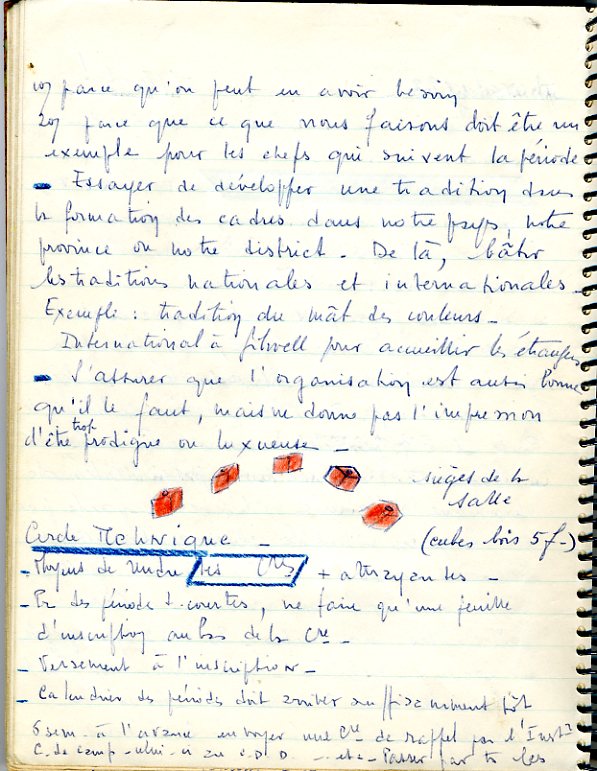 1o/ parce qu'on peut en avoir besoin
2o/ parce que ce que nous faisons doit être un
exemple pour les chefs qui suivent la période
- Essayer de développer une tradition dans
la formation des cadres dans notre pays, notre
province ou notre district - De là, bâtir
les traditions nationales et internationales -
Exemple : tradition du mât des couleurs -
International à Gilwell pour accueillir les étrangers
- S'assurer que l'organisation est aussi bonne
qu'il le faut, mais ne donne pas l'impression
d'être trop prodigue ou luxueuse -
sièges de la
salle
(cubes bois 5 f -)
Cercle Technique -
- Moyens de rendre les Cres + attrayantes -
- Pr des période + courtes, ne faire qu'une feuille
d'inscription au bas de la Cre -
- Versement à l'inscription -
- Calendrier des périodes doit arriver suffisamment tôt
6 sem - à l'avance envoyer une Cre de rappel par l'Instr
C. de camp - celui-ci au C.D.D. - etc - Passer par les